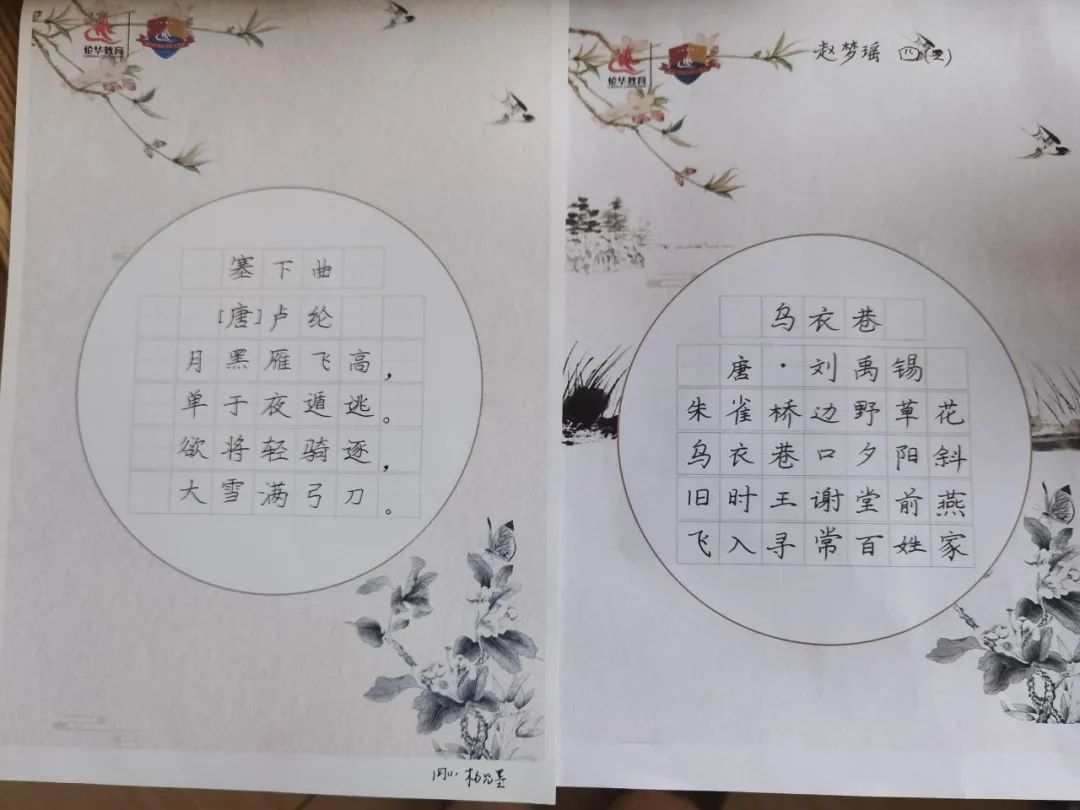 伦华教育
塞下曲
[唐]卢纶
月黑雁飞高，
单于夜遁逃。
欲将轻骑逐，
大雪满弓刀。
伦华教育
赵梦瑶
乌衣巷
唐·刘禹锡
朱雀桥边野草花
乌衣巷口夕阳斜
旧时王谢堂前燕
飞入寻常百姓家